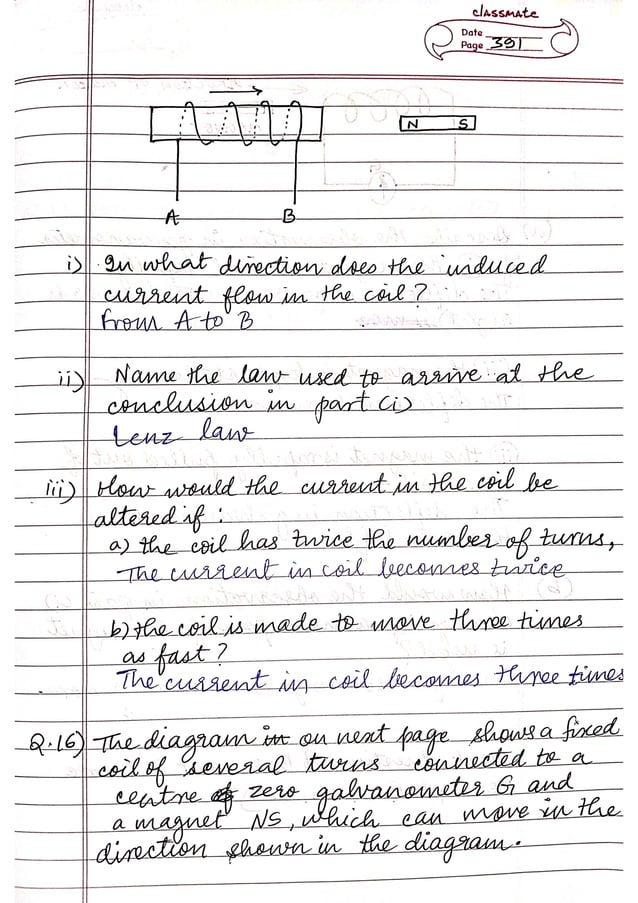 classmate
Date
Page 391
N S
A B
i) In what direction does the induced
current flow in the coil?
from A to B
ii) Name the law used to arrive at the
conclusion in part (i)
Lenz law
iii) How would the current in the coil be
altered if :
a) the coil has twice the number of turns,
The current in coil becomes twice
b) the coil is made to move three times
as fast?
The current in coil becomes three times
Q.16) The diagram in on next page shows a fixed
coil of several turns connected to a
centre zero galvanometer G and
a magnet NS, which can move in the
direction shown in the diagram.